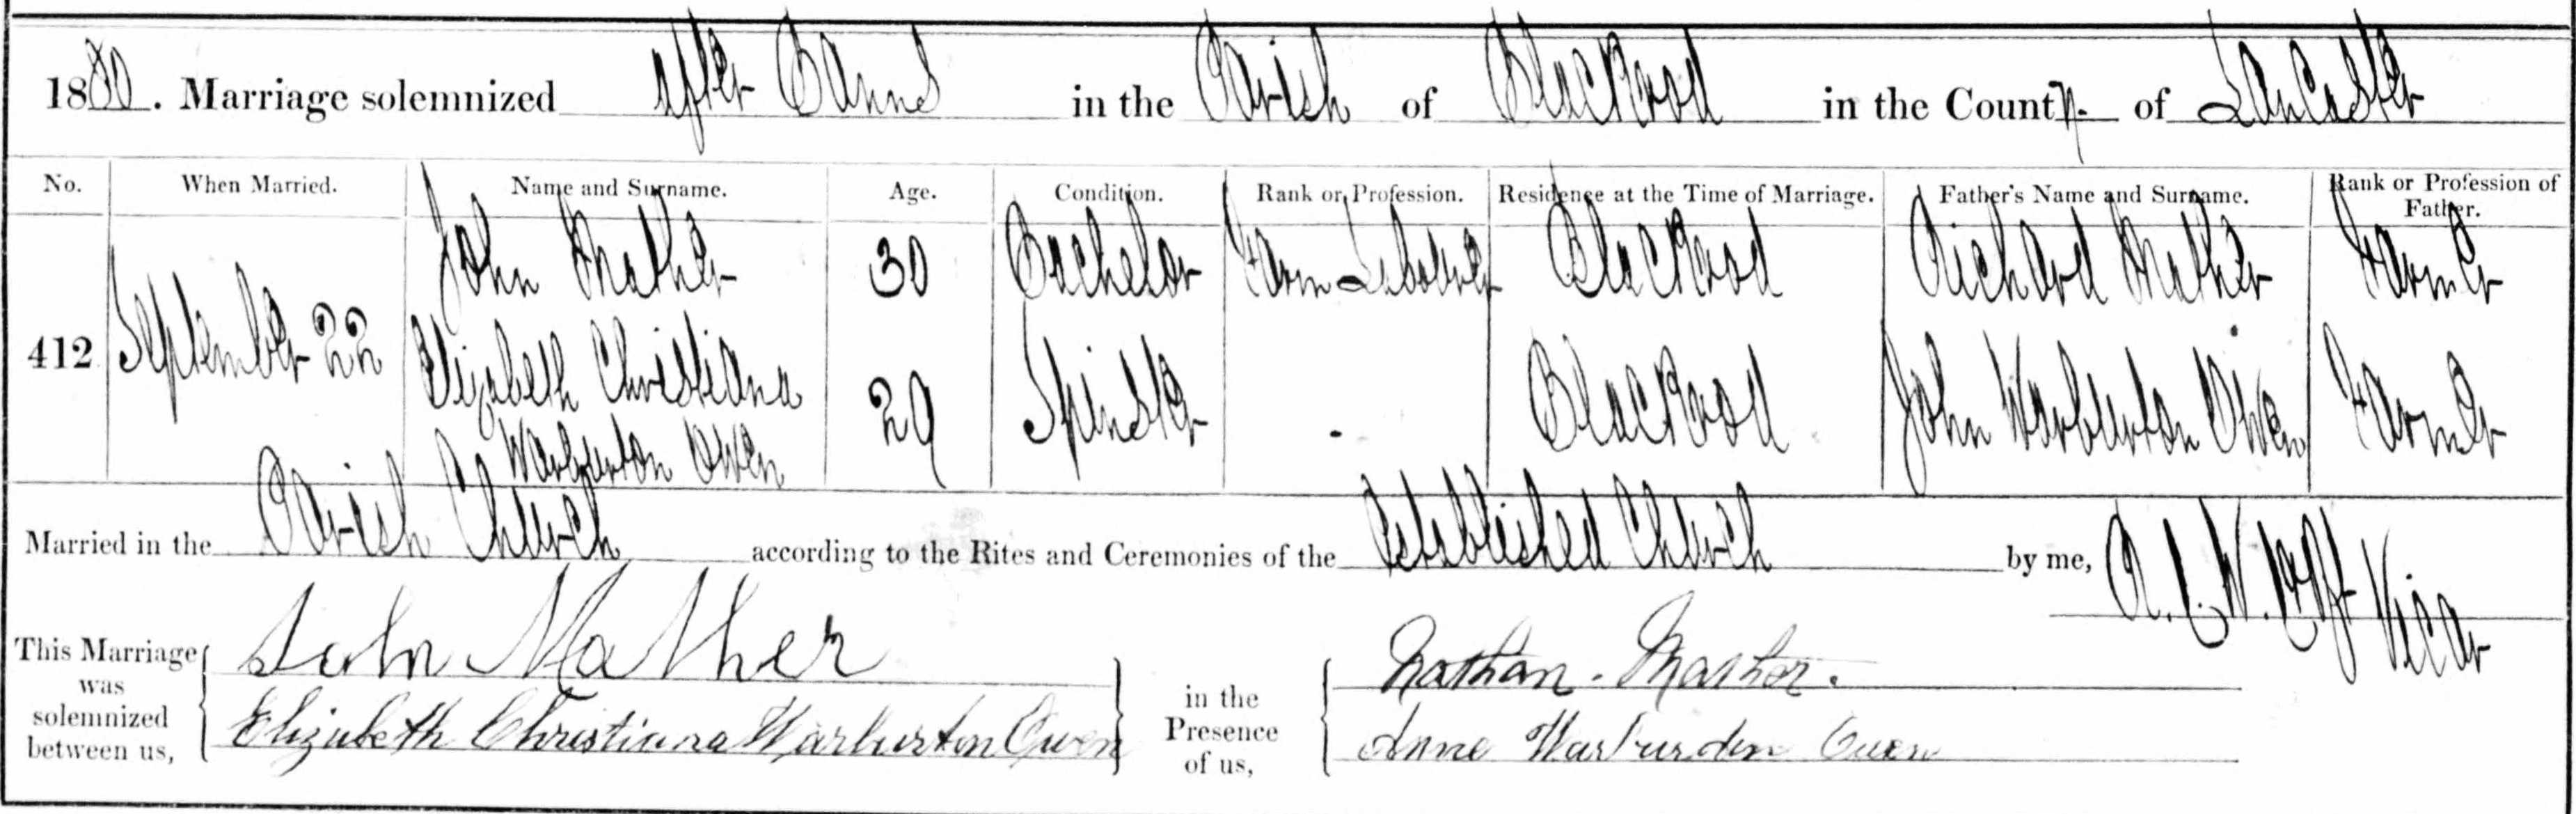 1880. Marriage solemnized after Banns in the Parish of Blackrod in the County of Lancaster
No. When Married. Name and Surname. Age. Condition. Rank or Profession. Residence at the Time of Marriage. Father's Name and Surname. Rank or Profession of Father.
John Mather 30 Bachelor Farm Labourer Blackrod Richard Mather Farmer
412 September 22 Elizabeth Christiana Warburton Owen 29 Spinster - Blackrod John Warburton Owen Farmer
Married in the Parish Church according to the Rites and Ceremonies of the Established Church by me, Vicar
This Marriage was solemnized between us,
John Mather
Elizabeth Christiana Warburton Owen
in the Presence of us,
Nathan. Mather.
Anne Warburden Owen